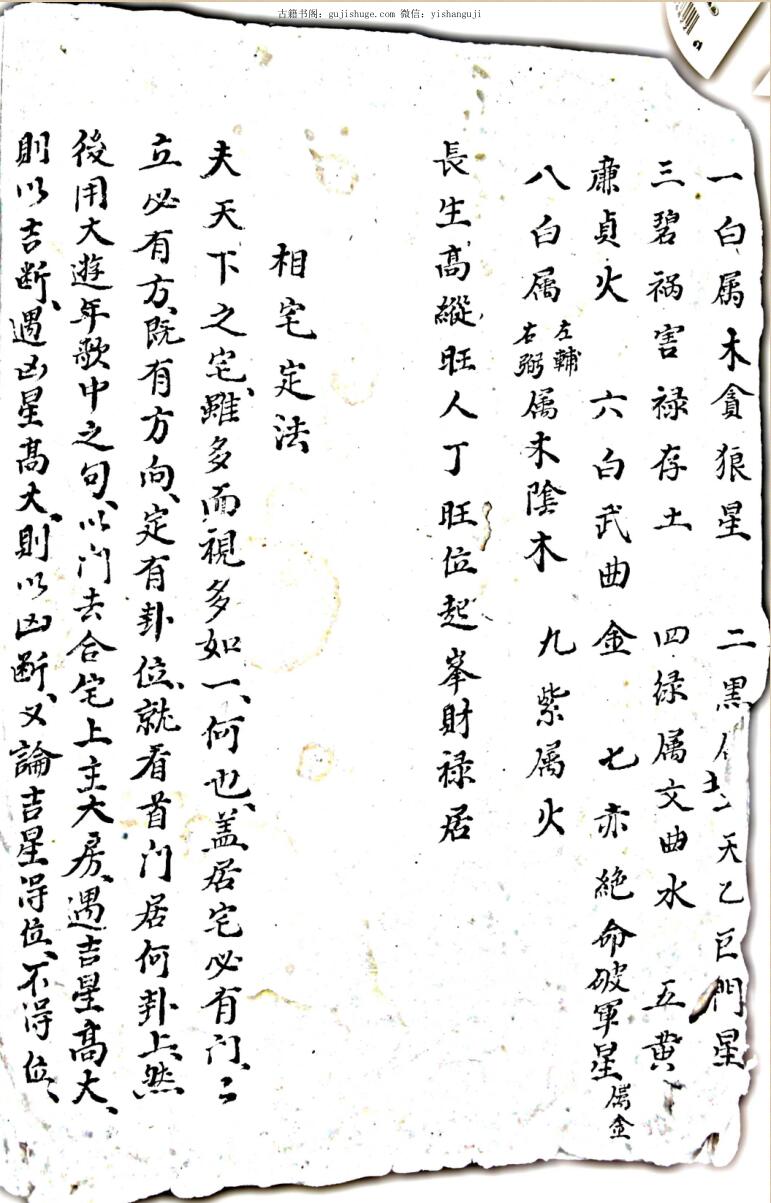 古籍书阁：gujishuge.com 微信：yishanguji
一白属木貪狼星 二黑属土 天乙巨門星
三碧祸害禄存土 四绿属文曲水 五黄
亷貞火 六白武曲金 七赤絶命破軍星属金
八白属左輔右弼属木陰木 九紫属火
長生高縱旺人丁旺位起峯財禄居
相宅定法
夫天下之宅、雖多面視多如一、何也、盖居宅必有门、〻
立必有方、既有方向、定有卦位、就看首门居何卦上、然
後用大遊年歌中之句、以门去合宅上主大房、遇吉星高大、
則以吉断、遇凶星高大、則以凶断、又論吉星得位、不得位、